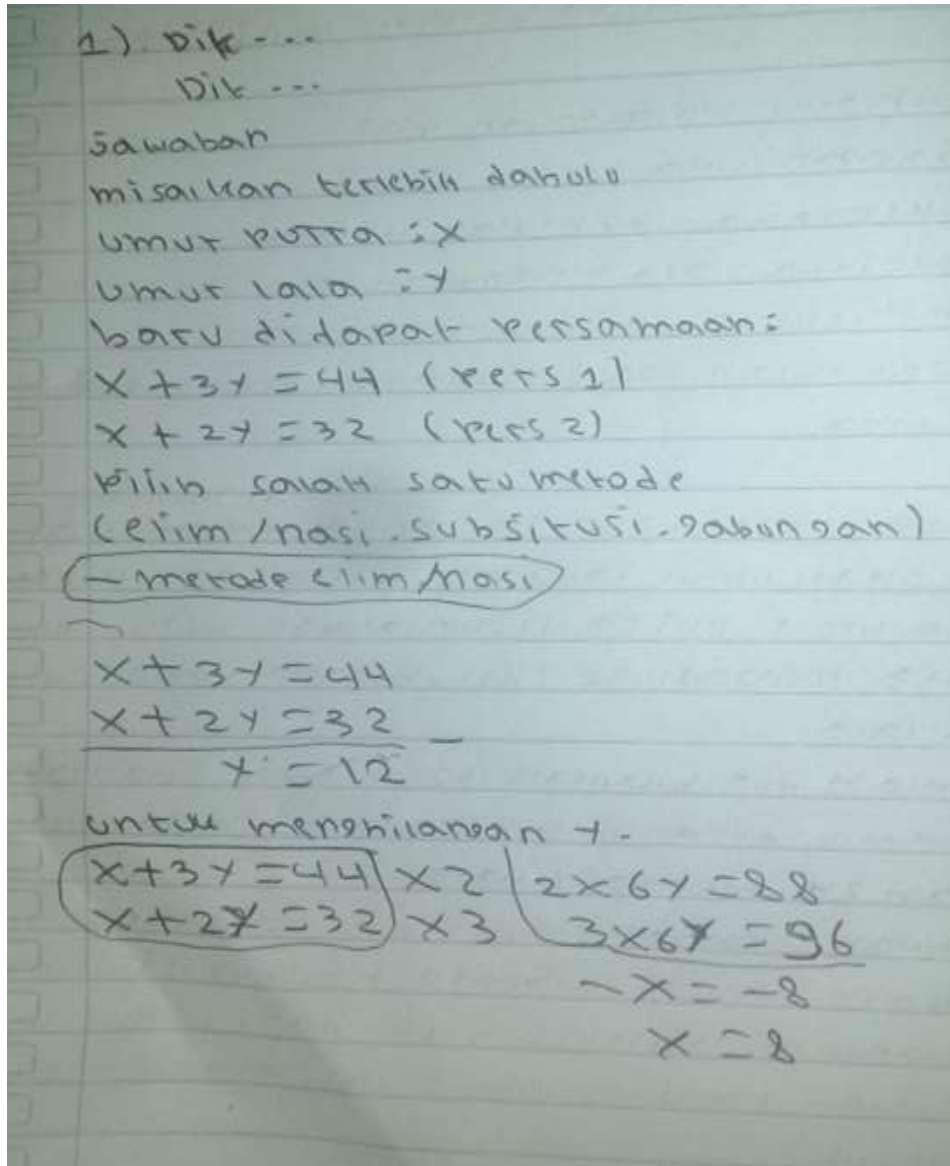 1). Dik - ...
Dit ...
Jawaban
misalkan terlebih dahulu
umur putra : x
umur lala : y
baru didapat persamaan:
x + 3y = 44 (pers 1)
x + 2y = 32 (pers 2)
Pilih salah satu metode
(eliminasi. subsitusi. gabungan)
- metode eliminasi
x + 3y = 44
x + 2y = 32 -
y = 12
untuk menghilangan y.
x+3y=44 x2 2x6y=88
x+2y=32 x3 3x6y=96
-x = -8
x = 8